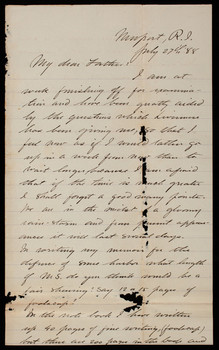 Newport, R.I.
July 27th 88
My dear Father:
I am at
work finishing off for examina-
tion and have been greatly aided
by the questions which
has been giving me, so that I
feel now as if I would rather go
up in a week from now than to
wait longer, because I am afraid
that if the time is much greater
I shall forget a good many points.
We are in the midst of a gloomy
rain-storm and from present appear-
ances it will last several days.
In writing my memoir for the
defense of some harbor what length
of MS. do you think would be a
fair thing? Say 12 or 15 pages of
foolscap?
In the note book I have written
up 40 pages of fine writing (foolscap)
but there are 200 pages in the book and